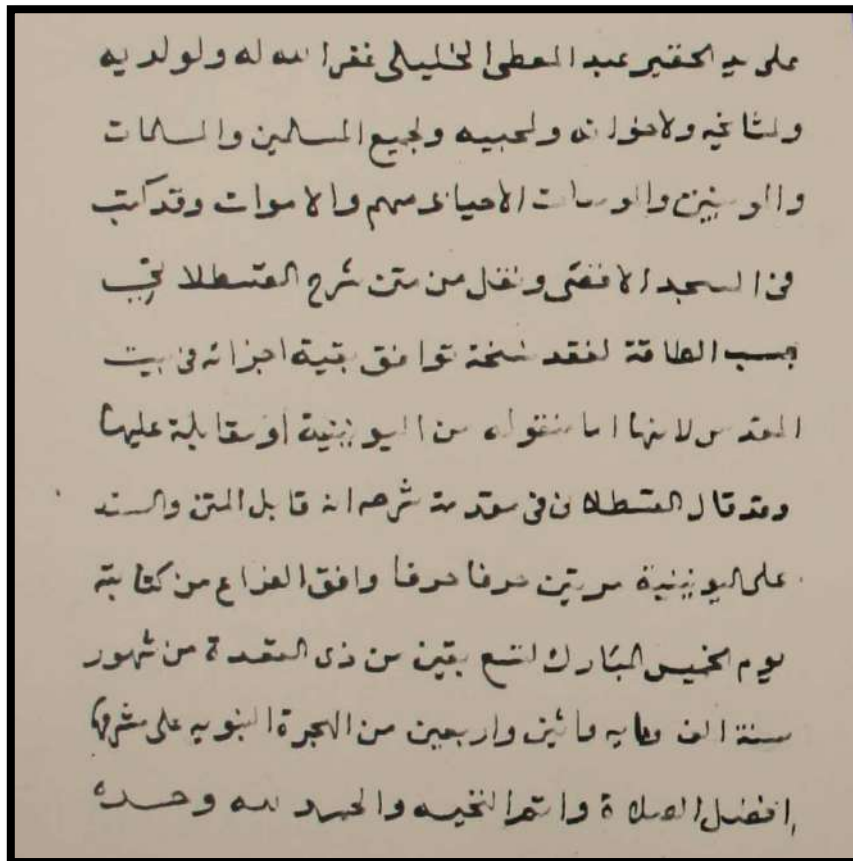 على يد الحقير عبد المعطى الخليلى غفر الله له ولوالديه
ولمشايخه ولاخوانه ولمحبيه ولجميع المسلمين والمسلمات
والمومنين والمومنات الاحياء منهم والاموات وقد كتب
فى المسجد الاقصى ونقل من متن شرح القسطلانى
بحسب الطاقة لفقد نسخة توافق بقية اجزائه فى بيت
المقدس لانها اما منقوله من اليونينية او مقابلة عليها
وقد قال القسطلانى فى مقدمة شرحه انه قابل المتن والسند
على اليونينية مرتين حرفا حرفا وافق الفراغ من كتابته
يوم الخميس المبارك لتسع بقين من ذى القعدة من شهور
سنة الف ومايه ومائين واربعين من الهجرة النبويه على مشرفها
افضل الصلاة واتم التحيه والحمد لله وحده